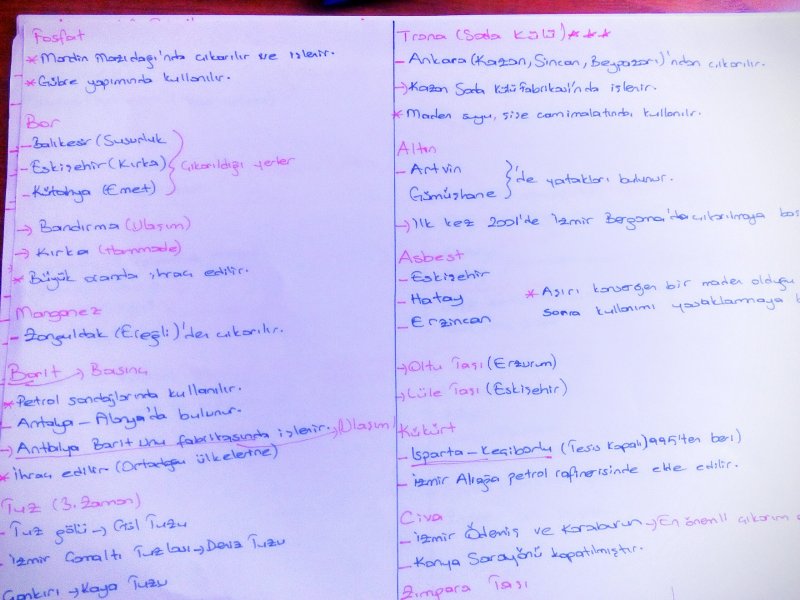 Fosfat
* Mardin Mazıdağı'nda çıkarılır ve işlenir.
* Gübre yapımında kullanılır.
Bor
- Balıkesir (Susurluk
- Eskişehir (Kırka)
- Kütahya (Emet)
Çıkarıldığı yerler
→ Bandırma (Ulaşım)
→ Kırka (Hammade)
* Büyük oranda ihraç edilir.
Manganez
- Zonguldak (Ereğli)'den çıkarılır.
Barit → Basınç
* Petrol sondajlarında kullanılır.
- Antalya - Alanya'da bulunur.
→ Antalya Barit unu fabrikasında işlenir. → Ulaşım
* İhraç edilir (Ortadoğu ülkelerine)
Tuz (3. Zaman)
- Tuz gölü → Göl Tuzu
- İzmir Çamaltı Tuzlası → Deniz Tuzu
Çankırı → Kaya Tuzu
Trona (Soda Külü) ***
- Ankara (Kazan, Sincan, Beypazarı)'ndan çıkarılır.
→ Kazan Soda Külü fabrikası'nda işlenir.
* Maden suyu, şişe cam imalatında kullanılır.
Altın
- Artvin
Gümüşhane
'de yatakları bulunur.
→ İlk kez 2001'de İzmir Bergama'da çıkarılmaya baş
Asbest
- Eskişehir
- Hatay
- Erzincan
* Aşırı kanserojen bir maden olduğu
sonra kullanımı yasaklanmaya b
→ Oltu Taşı (Erzurum)
→ Lüle Taşı (Eskişehir)
Kükürt
- Isparta - Keçiborlu (Tesis Kapalı) 1995'ten beri)
- İzmir Aliağa petrol rafinerisinde elde edilir.
Civa
- İzmir Ödemiş ve Karaburun → En önemli çıkarım
- Konya Sarayönü kapatılmıştır.
Zımpara Taşı